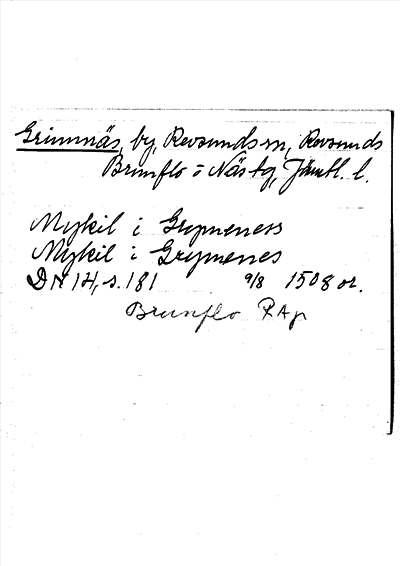 Grimnäs, by, Revsunds sn, Revsunds
Brunflo o Näs tg, Jämtl. l.
Mykil i Grymeness
Mykil i Grymenes
DN 14, s. 181 9/8 1508 or.
Brunflo RAp